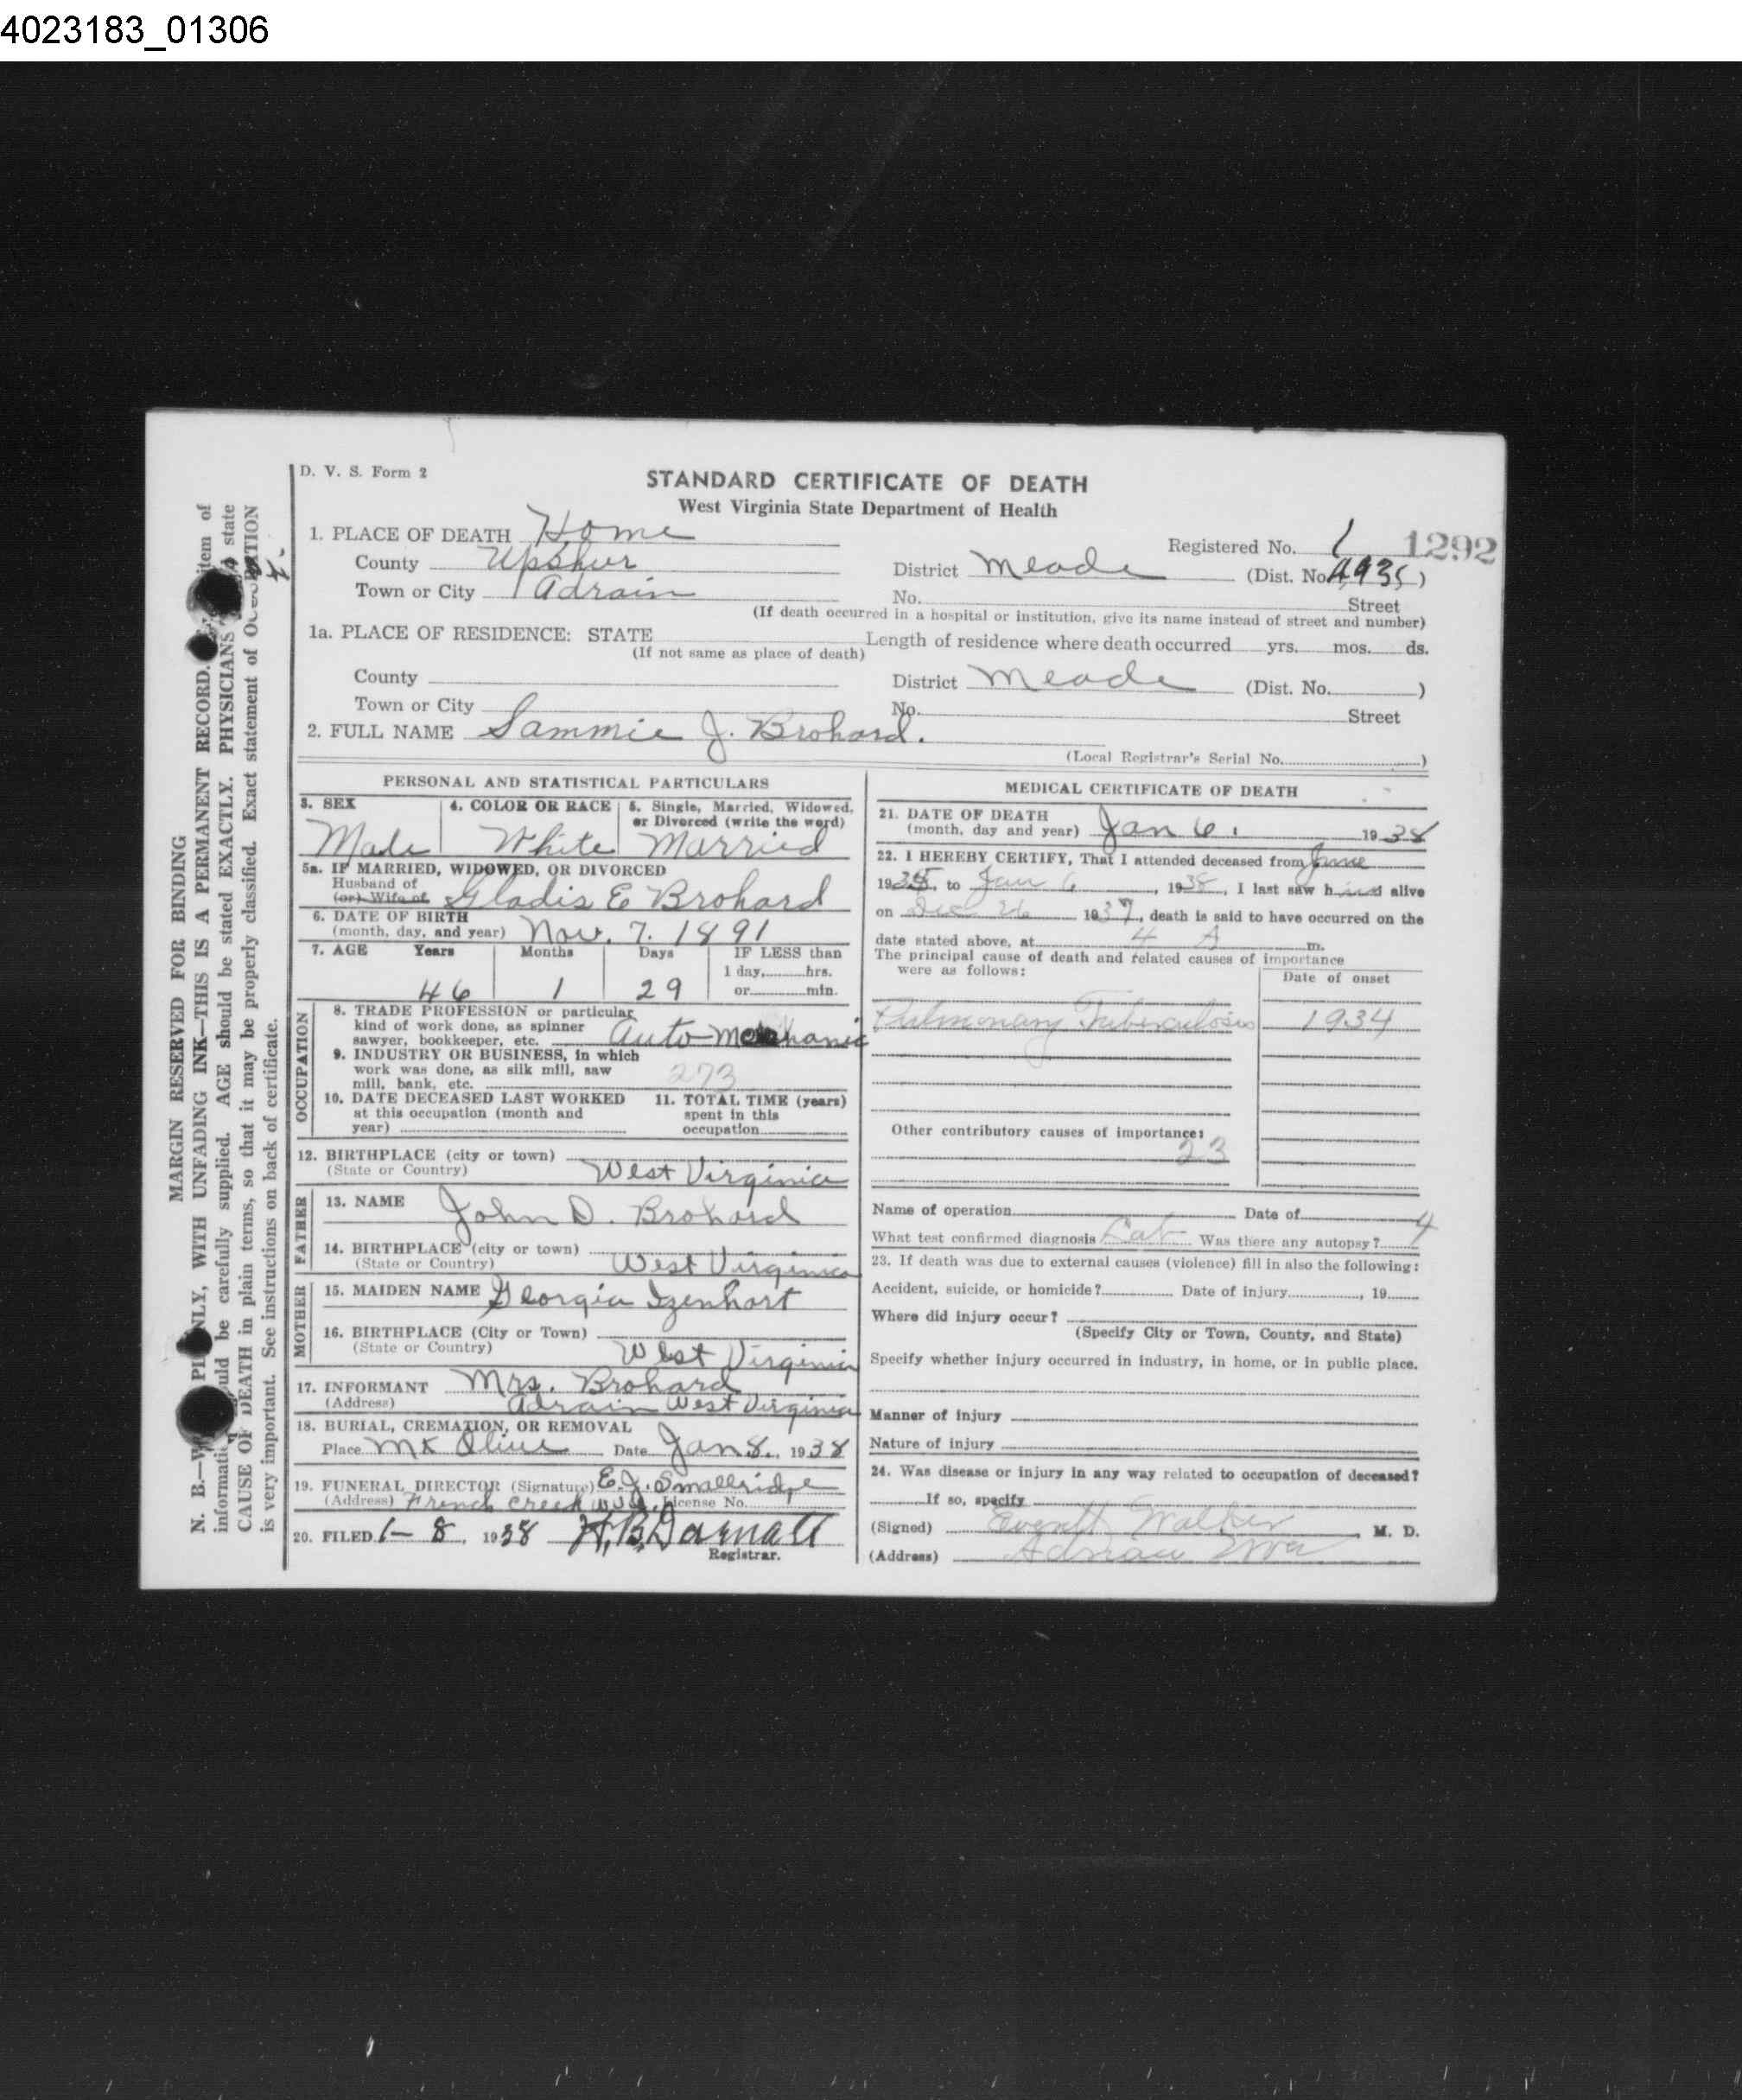 4023183_01306
D. V. S. Form 2
STANDARD CERTIFICATE OF DEATH
West Virginia State Department of Health
1. PLACE OF DEATH Home
Registered No. 1 1292
County Upshur
District Meade (Dist. No. 4935)
Town or City Adrain
No. Street
(If death occurred in a hospital or institution, give its name instead of street and number)
1a. PLACE OF RESIDENCE: STATE
Length of residence where death occurred yrs. mos. ds.
(If not same as place of death)
County
District Meade (Dist. No. )
Town or City
No. Street
2. FULL NAME Sammie J. Brohard.
(Local Registrar's Serial No. )
PERSONAL AND STATISTICAL PARTICULARS
3. SEX
4. COLOR OR RACE
5. Single, Married, Widowed, or Divorced (write the word)
Male White Married
5a. IF MARRIED, WIDOWED, OR DIVORCED
Husband of
(or) Wife of Gladis E Brohard
6. DATE OF BIRTH
(month, day, and year) Nov. 7. 1891
7. AGE Years Months Days IF LESS than
1 day, hrs.
46 1 29 or min.
OCCUPATION
8. TRADE PROFESSION or particular
kind of work done, as spinner
sawyer, bookkeeper, etc. Auto Mechanic
9. INDUSTRY OR BUSINESS, in which
work was done, as silk mill, saw
mill, bank, etc. 273
10. DATE DECEASED LAST WORKED
at this occupation (month and
year)
11. TOTAL TIME (years)
spent in this
occupation
12. BIRTHPLACE (city or town)
(State or Country) West Virginia
FATHER
13. NAME John D. Brohard
14. BIRTHPLACE (city or town)
(State or Country) West Virginia
MOTHER
15. MAIDEN NAME Georgia Izenhart
16. BIRTHPLACE (City or Town)
(State or Country) West Virginia
17. INFORMANT Mrs. Brohard
(Address) Adrain West Virginia
18. BURIAL, CREMATION, OR REMOVAL
Place Mt Olive Date Jan 8., 1938
19. FUNERAL DIRECTOR (Signature) E. J. Smallridge
(Address) French Creek W Va. License No.
20. FILED 1-8, 1938 H. B. Darnall
Registrar.
MEDICAL CERTIFICATE OF DEATH
21. DATE OF DEATH
(month, day and year) Jan 6, 1938
22. I HEREBY CERTIFY, That I attended deceased from June
193, to Jan 6, 1938, I last saw him alive
on Dec 26 1937, death is said to have occurred on the
date stated above, at 4 A m.
The principal cause of death and related causes of importance
were as follows:
Date of onset
Pulmonary Tuberculosis 1934
Other contributory causes of importance:
23
Name of operation Date of
What test confirmed diagnosis Lab Was there any autopsy? 4
23. If death was due to external causes (violence) fill in also the following:
Accident, suicide, or homicide? Date of injury , 19
Where did injury occur?
(Specify City or Town, County, and State)
Specify whether injury occurred in industry, in home, or in public place.
Manner of injury
Nature of injury
24. Was disease or injury in any way related to occupation of deceased?
If so, specify
(Signed) Everett Walker, M. D.
(Address) Adrian W Va
MARGIN RESERVED FOR BINDING
N. B.—W PL NLY, WITH UNFADING INK—THIS IS A PERMANENT RECORD. item of
informati uld be carefully supplied. AGE should be stated EXACTLY. PHYSICIANS state
CAUSE OF DEATH in plain terms, so that it may be properly classified. Exact statement of OCCUPATION
is very important. See instructions on back of certificate.